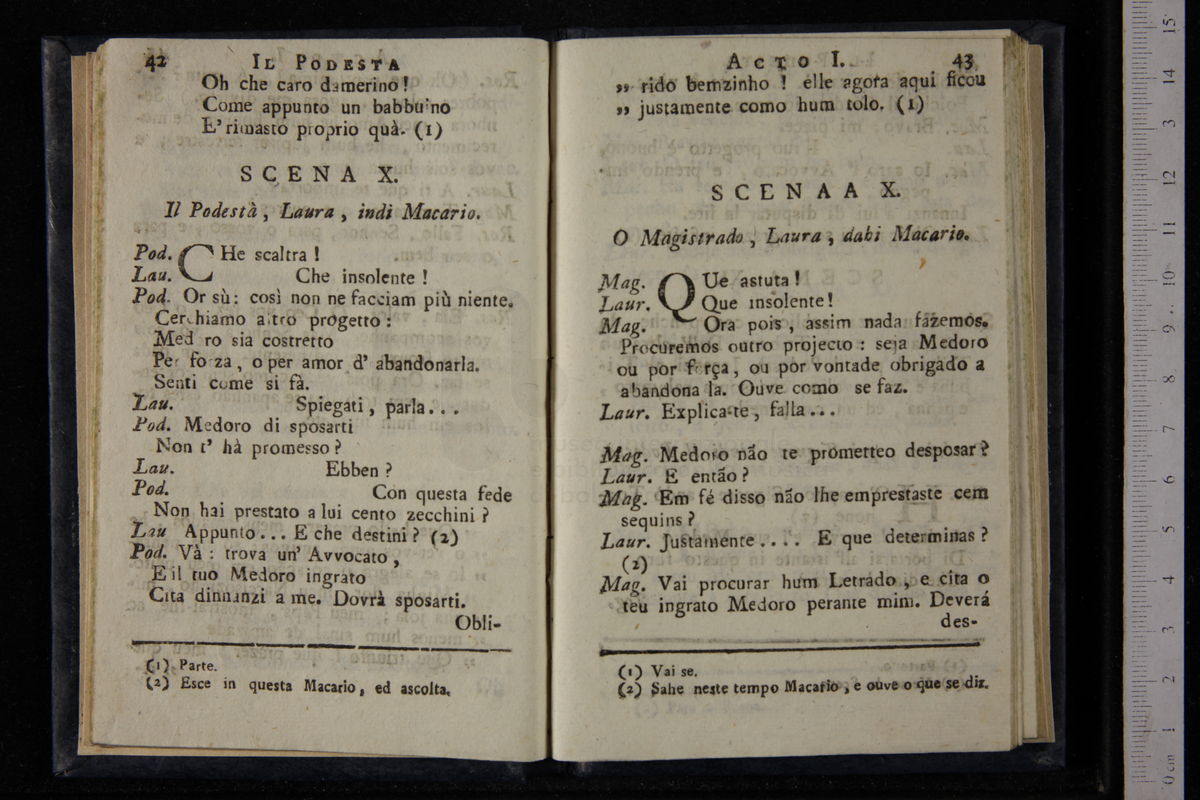 42 IL PODESTA
Oh che caro damerino!
Come appunto un babbu'no
E' rimasto proprio quà. (1)
SCENA X.
Il Podestà, Laura, indi Macario.
Pod. CHe scaltra!
Lau. Che insolente!
Pod. Or sù: così non ne facciam più niente.
Cerchiamo altro progetto:
Med ro sia costretto
Per forza, o per amor d' abandonarla.
Senti come si fà.
Lau. Spiegati, parla...
Pod. Medoro di sposarti
Non t' hà promesso?
Lau. Ebben?
Pod. Con questa fede
Non hai prestato a lui cento zecchini?
Lau Appunto... E che destini? (2)
Pod. Và: trova un' Avvocato,
E il tuo Medoro ingrato
Cita dinnanzi a me. Dovrà sposarti.
Obli-
(1) Parte.
(2) Esce in questa Macario, ed ascolta.
ACTO I. 43
„ rido bemzinho! elle agora aqui ficou
„ justamente como hum tolo. (1)
SCENAA X.
O Magistrado, Laura, dahi Macario.
Mag. QUe astuta!
Laur. Que insolente!
Mag. Ora pois, assim nada fazemos.
Procuremos outro projecto: seja Medoro
ou por força, ou por vontade obrigado a
abandona la. Ouve como se faz.
Laur. Explica-te, falla...
Mag. Medoro não te prometteo desposar?
Laur. E então?
Mag. Em fé disso não lhe emprestaste cem
sequins?
Laur. Justamente.... E que determinas?
(2)
Mag. Vai procurar hum Letrado, e cita o
teu ingrato Medoro perante mim. Deverá
des-
(1) Vai se.
(2) Sahe neste tempo Macario, e ouve o que se diz.
0 cm 1 2 3 4 5 6 7 8 9 10 11 12 13 14 15